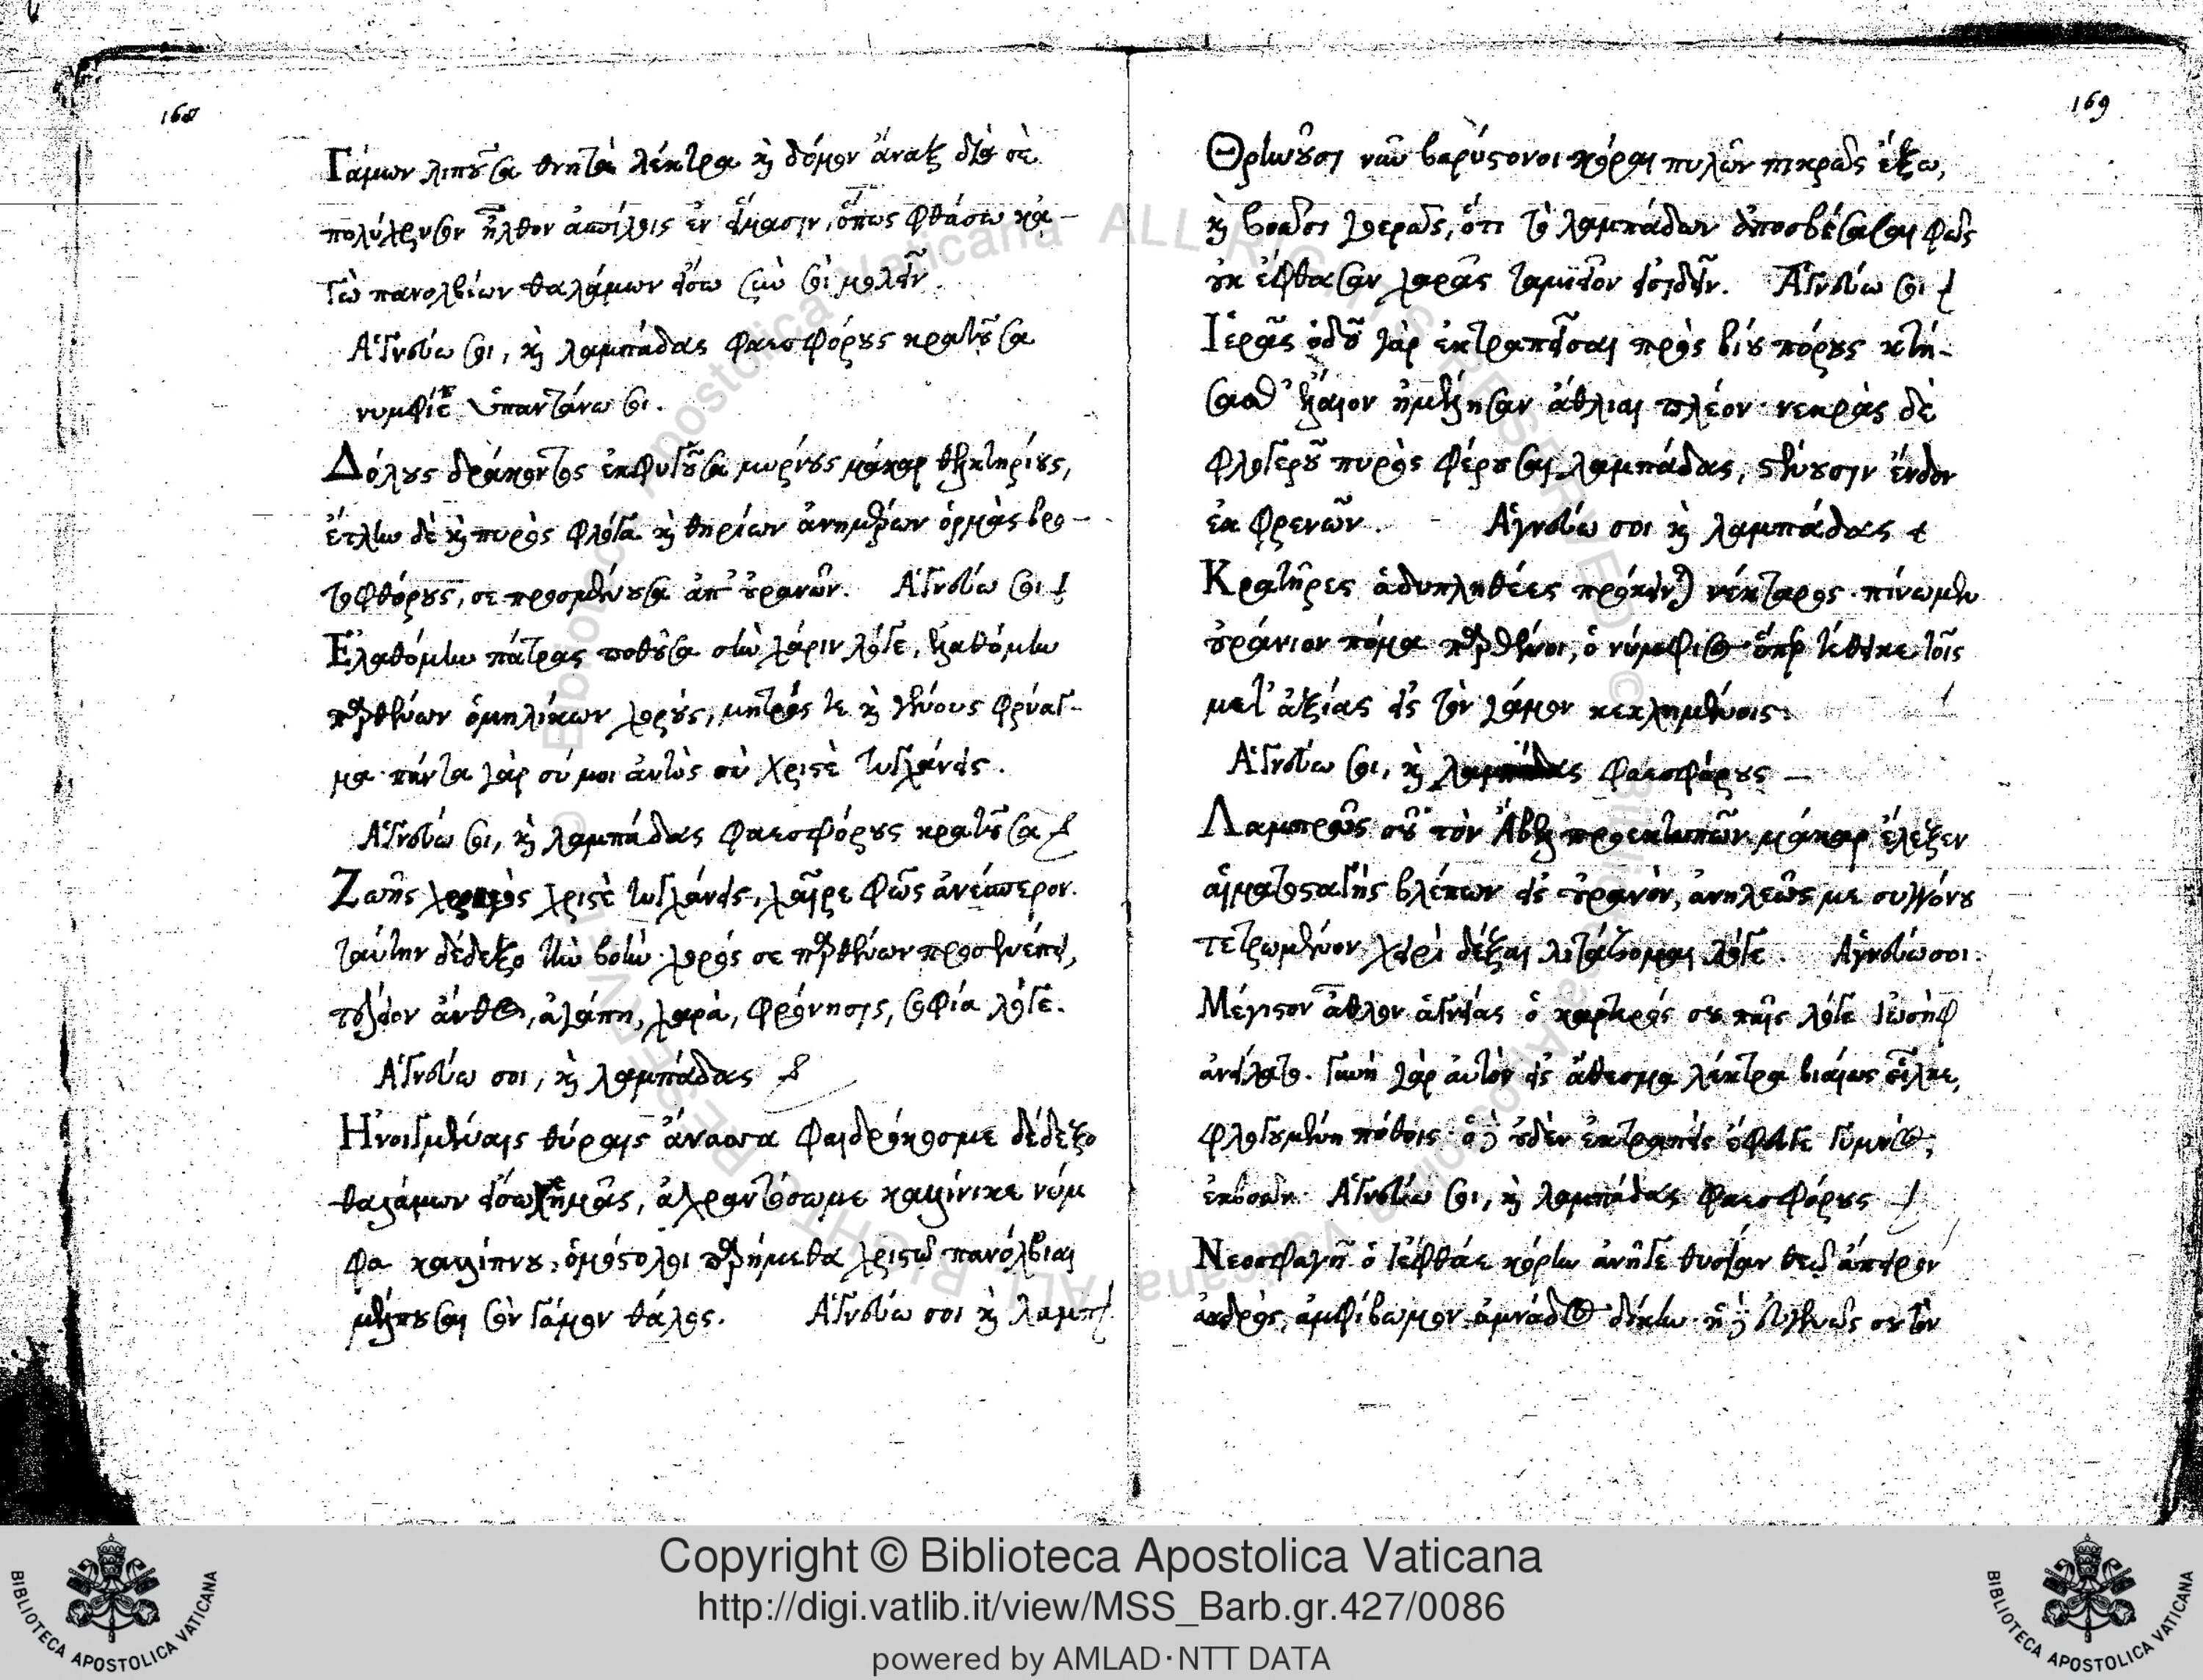 168
Γάμων λιποῦσα θνητὰ λέκτρα καὶ δόμον ἄναξ διὰ σὲ
πολύχρυσον ἦλθον ἀσπίλοις ἐν εἵμασιν, ὅπως φθάσω κᾀ-
γὼ πανολβίων θαλάμων εἴσω σὺν σοὶ μολεῖν.
Ἁγνεύω σοι, καὶ λαμπάδας φαεσφόρους κρατοῦσα
νυμφίε ὑπαντάνω σοι.
Δόλους δράκοντος ἐκφυγοῦσα μυρίους μάκαρ θελκτηρίους,
ἔτλην δὲ καὶ πυρὸς φλόγα καὶ θηρίων ἀνημέρων ὁρμὰς βρο-
τοφθόρους, σε προσμένουσα ἀπ' οὐρανῶν. Ἁγνεύω σοι
Ἐλαθόμην πάτρας ποθοῦσα σὴν χάριν λόγε, ἐλαθόμην
παρθένων ὁμηλίκων χορούς, μητρός τε καὶ γένους φρύαγ-
μα· πάντα γὰρ σύ μοι αὐτὸς σὺ Χριστὲ τυγχάνεις.
Ἁγνεύω σοι, καὶ λαμπάδας φαεσφόρους κρατοῦσα
Ζωῆς χορηγὸς χριστὲ τυγχάνεις, χαῖρε φῶς ἀνέσπερον.
ταύτην δέδεξο τὴν βοήν· χορός σε παρθένων προσεννέπει,
τέλειον ἄνθος, ἀγάπη, χαρά, φρόνησις, σοφία λόγε.
Ἁγνεύω σοι, καὶ λαμπάδας
Ἠνοιγμέναις θύραις ἄνασσα φαιδρόκοσμε δέδεξο
θαλάμων εἴσω χἠμᾶς, ἀχραντόσωμε καλλίνικε νύμ
φα καλλίπνου, ὁμόστολοι παρήμεθα χριστῷ πανόλβιαι
μέλπουσαι σὸν γάμον θάλος. Ἁγνεύω σοι καὶ λαμπ
169
Θρηνοῦσι νῦν βαρύστονοι κόραι πυλῶν πικρῶς ἔξω,
καὶ βοῶσι γοερῶς, ὅτι τὸ λαμπάδων ἀποσβέσασαι φῶς
οὐκ ἔφθασαν χαρᾶς ταμιεῖον εἰσιδεῖν. Ἁγνεύω σοι
Ἱερᾶς ὁδοῦ γὰρ ἐκτραπεῖσαι πρὸς βίου πόρους κτή-
σασθ' ἔλαιον ἠμέλησαν ἄθλιαι πλέον· νεκρὰς δὲ
φλογεροῦ πυρὸς φέρουσαι λαμπάδας, στένουσιν ἔνδον
ἐκ φρενῶν. Ἁγνεύω σοι καὶ λαμπάδας
Κρατῆρες ἁδυπληθέες πρόκεινται νέκταρος· πίνωμεν
οὐράνιον πόμα παρθένοι, ὁ νύμφιος ὅπερ τέθεικε τοῖς
μετ' ἀξίας εἰς τὸν γάμον κεκλημένοις.
Ἁγνεύω σοι, καὶ λαμπάδας φαεσφόρους
Λαμπρῶς σοῦ τὸν Ἄβελ προεκτυπῶν μάκαρ ἔλεξεν
αἱματοσταγὴς βλέπων εἰς οὐρανόν, ἀνηλεῶς με συγγόνου
τετρωμένον χειρὶ δέξαι λιτάζομαι λόγε. Ἁγνεύω σοι.
Μέγιστον ἆθλον ἁγνείας ὁ καρτερός σου παῖς λόγε Ἰωσὴφ
ἀνείλατο. Γυνὴ γὰρ αὐτὸν εἰς ἄθεσμα λέκτρα βιαίως εἷλκε,
φλογουμένη πόθοις· ὁ δὲ οὐδὲν ἐκτραπεὶς ἔφυγε γυμνός,
ἐκβοῶν· Ἁγνεύω σοι, καὶ λαμπάδας φαεσφόρους
Νεοσφαγῆ ὁ Ἰεφθάε κόρην ἀνῆγε θυσίαν θεῷ ἄπειρον
ἀνδρός, ἀμφιβώμον ἀμνάδος δίκην· ἡ δὲ εὐγενῶς σε τὸν
Copyright © Biblioteca Apostolica Vaticana
http://digi.vatlib.it/view/MSS_Barb.gr.427/0086
powered by AMLAD·NTT DATA
BIBLIOTECA APOSTOLICA VATICANA
BIBLIOTECA APOSTOLICA VATICANA